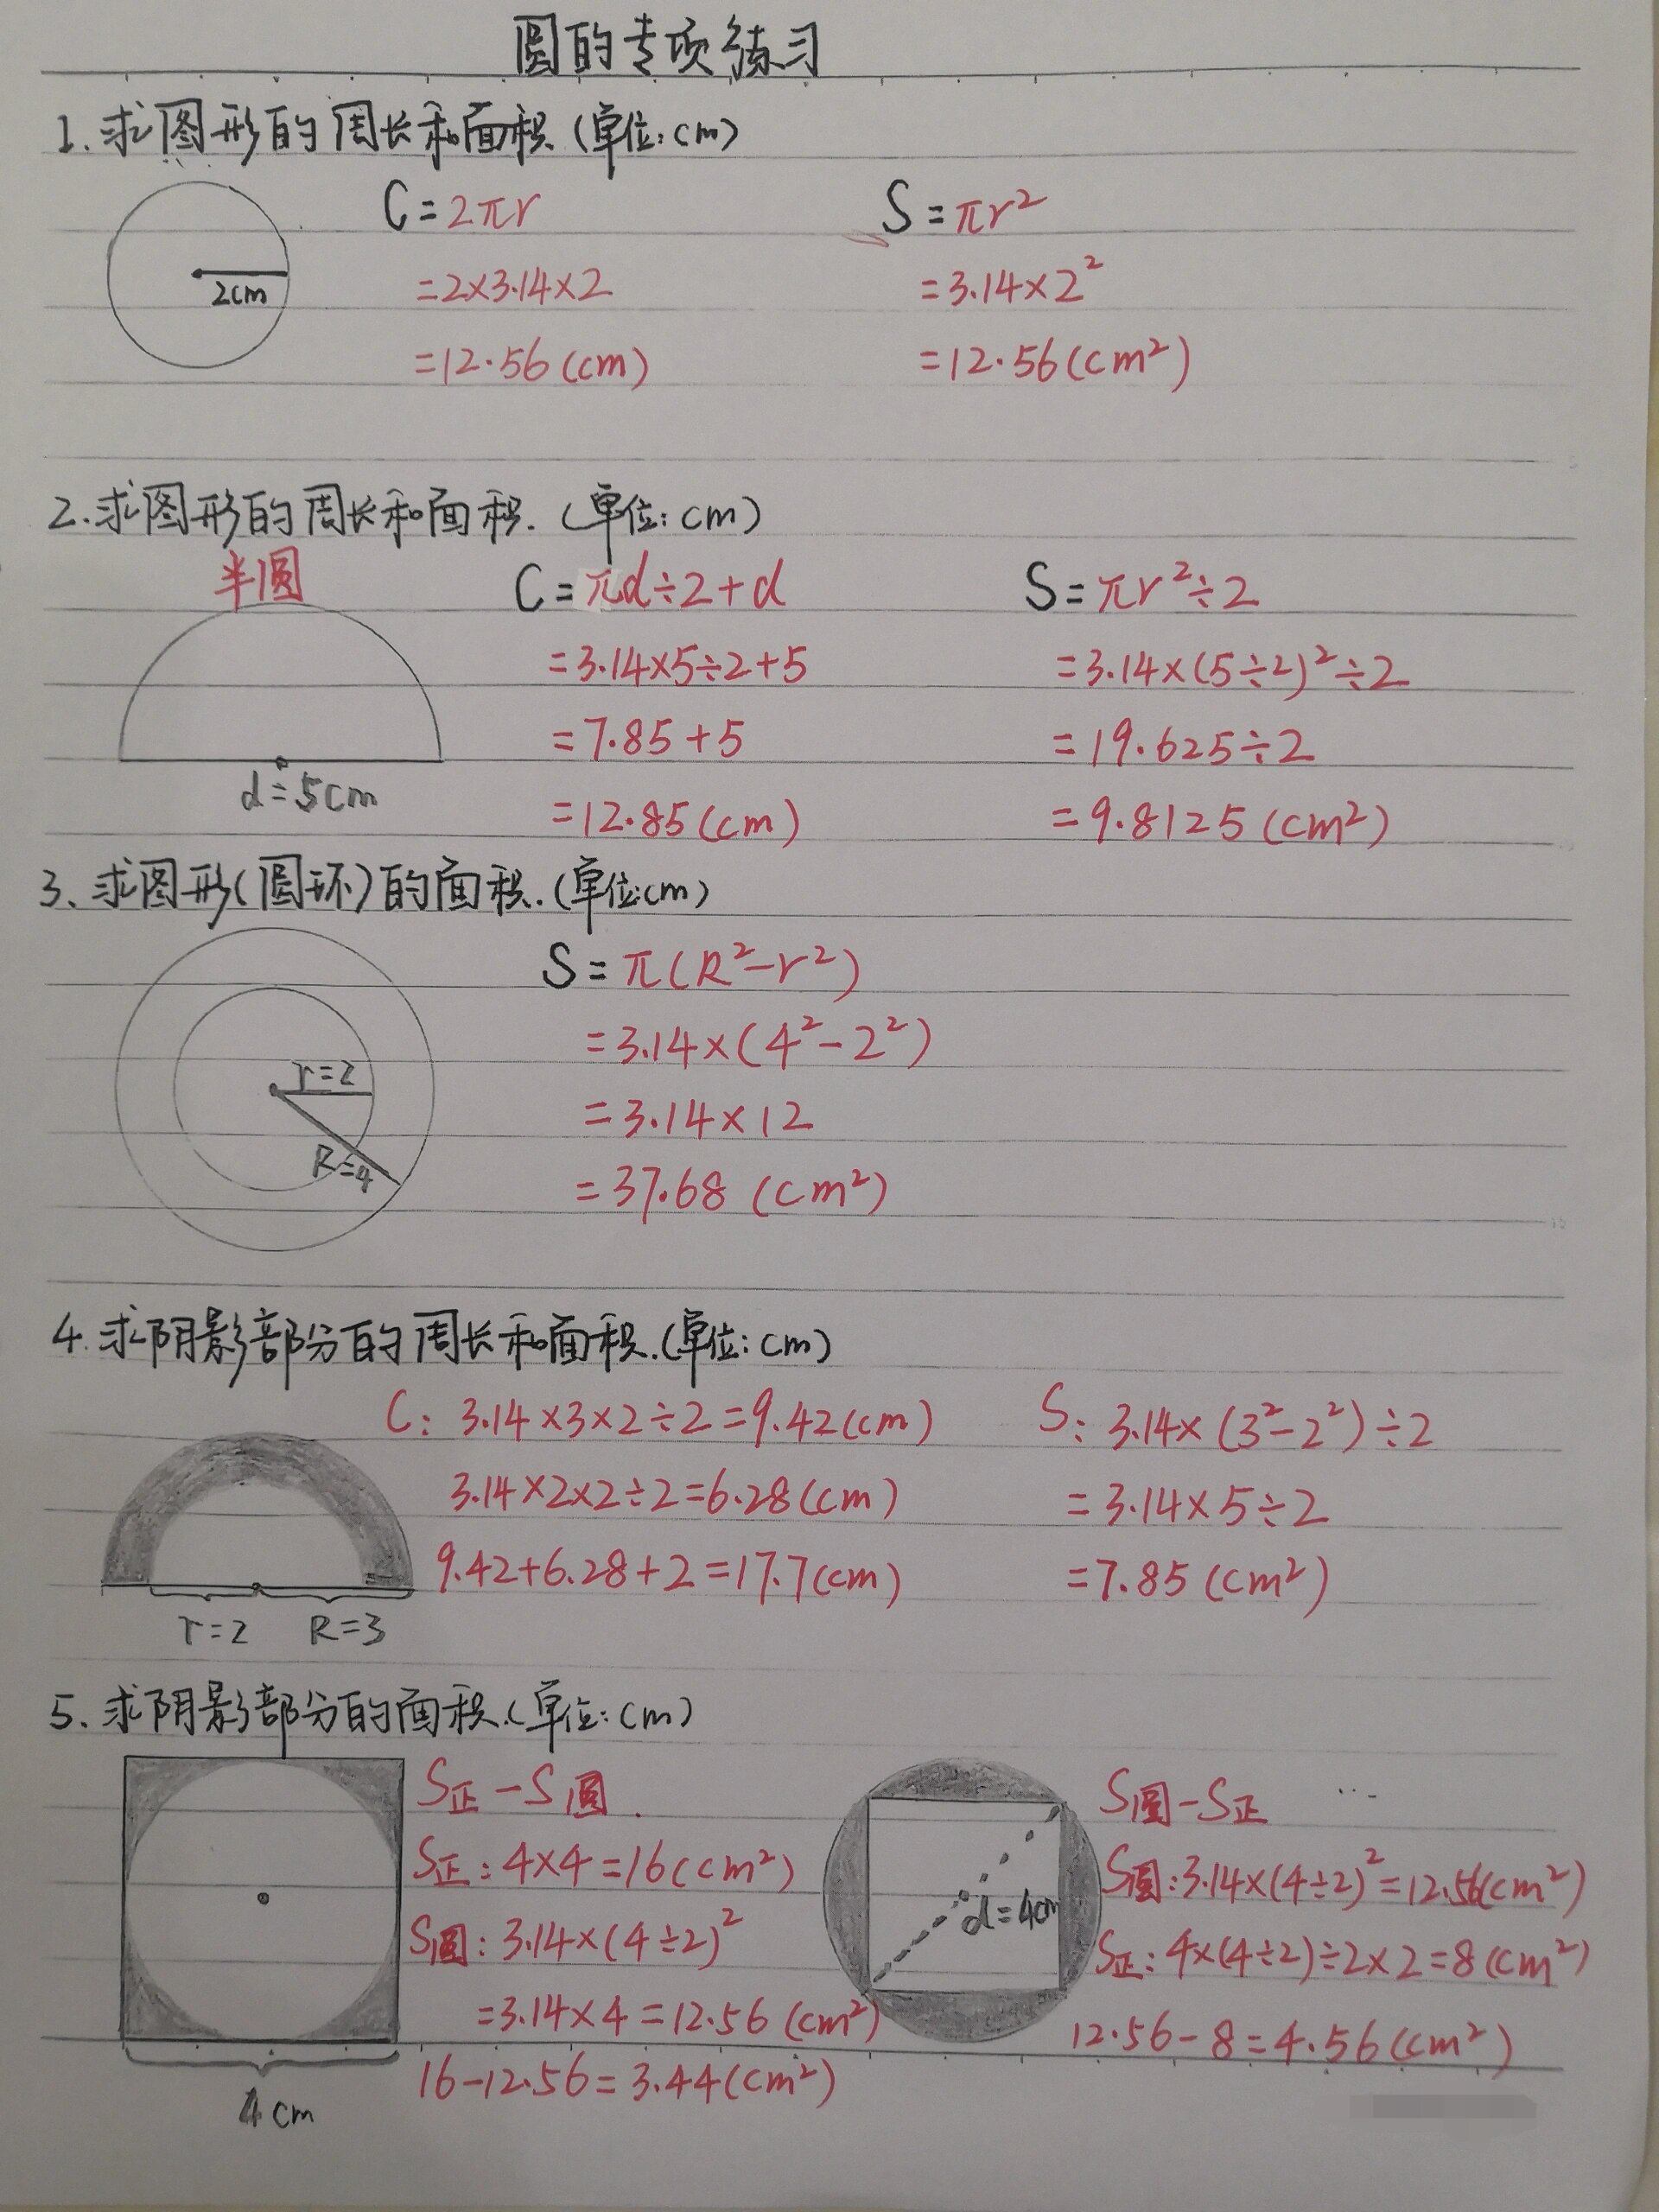 圆的专项练习
1.求图形的周长和面积.(单位:cm)
2cm
C=2πr
=2×3.14×2
=12.56(cm)
S=πr²
=3.14×2²
=12.56(cm²)
2.求图形的周长和面积.(单位:cm)
半圆
d=5cm
C=πd÷2+d
=3.14×5÷2+5
=7.85+5
=12.85(cm)
S=πr²÷2
=3.14×(5÷2)²÷2
=19.625÷2
=9.8125(cm²)
3、求图形(圆环)的面积.(单位:cm)
r=2
R=4
S=π(R²-r²)
=3.14×(4²-2²)
=3.14×12
=37.68(cm²)
4.求阴影部分的周长和面积.(单位:cm)
r=2 R=3
C:3.14×3×2÷2=9.42(cm)
3.14×2×2÷2=6.28(cm)
9.42+6.28+2=17.7(cm)
S:3.14×(3²-2²)÷2
=3.14×5÷2
=7.85(cm²)
5、求阴影部分的面积.(单位:cm)
4cm
S正-S圆
S正:4×4=16(cm²)
S圆:3.14×(4÷2)²
=3.14×4=12.56(cm²)
16-12.56=3.44(cm²)
d=4cm
S圆-S正
S圆:3.14×(4÷2)²=12.56(cm²)
S正:4×(4÷2)÷2×2=8(cm²)
12.56-8=4.56(cm²)